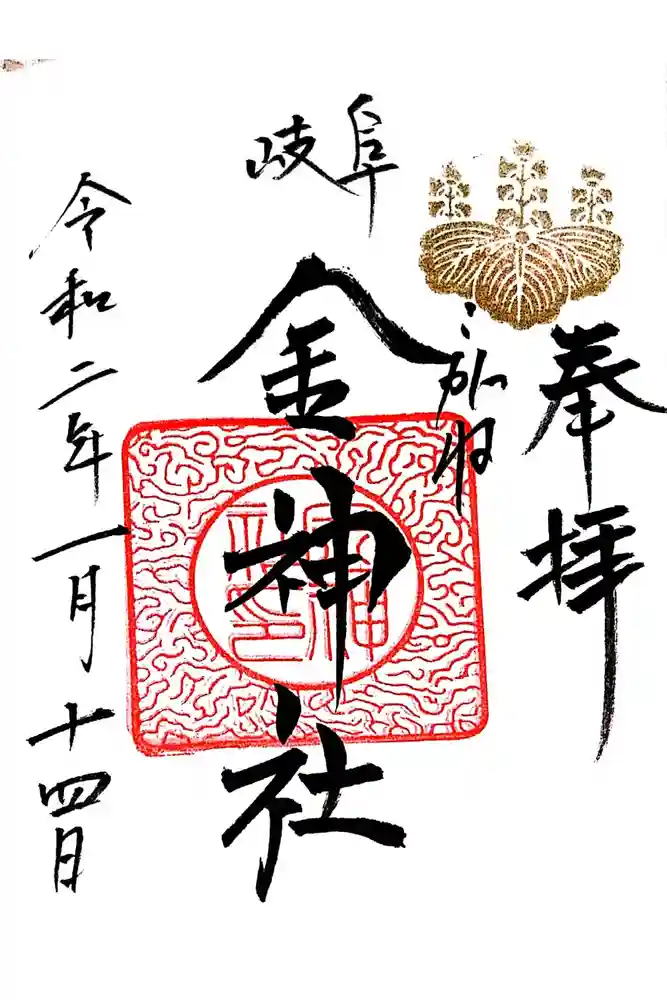 奉拝
こがね
岐阜
金神社
令和二年一月十四日